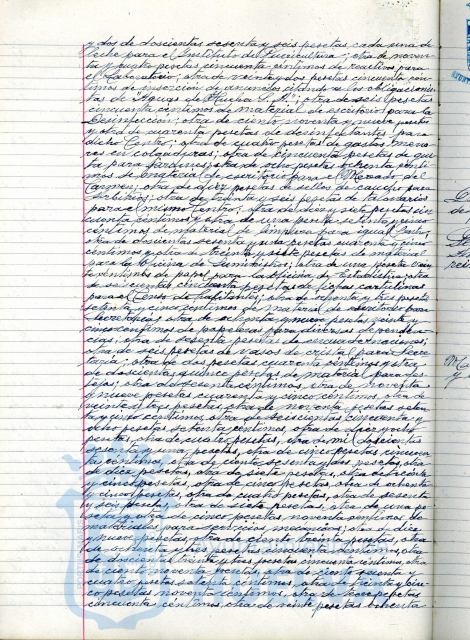 y dos de doscientas sesenta y seis pesetas, cada una de
leche para el Instituto de Puericultura; otra de noven-
ta y cuatro pesetas cincuenta céntimos de reactivos para
el Laboratorio; otra de veinte y dos pesetas cincuenta cén-
timos de inserción de anuncios citando a los obligacionis-
tas de "Aguas de Huelva S. A."; otra de seis pesetas
cincuenta céntimos de material de escritorio para la
Desinfección; otra de ciento noventa y nueve pesetas
y otra de cuarenta pesetas de desinfectantes para
dicho Centro; otra de cuatro pesetas de gastos meno-
res en; otra de cincuenta pesetas de
para jardines; otra de pesetas cénti-
mos de material de escritorio para el Mercado del
Carmen; otra de diez pesetas de sellos de caucho para
Arbitrios; otra de treinta y seis pesetas de talonarios
para el mismo Centro; otra de diez y siete pesetas cin-
cuenta céntimos y otra de una peseta ochenta y cinco
céntimos de material de limpieza para igual Centro;
otra de doscientas sesenta y una pesetas cuarenta y cinco
céntimos y otra de treinta y siete pesetas de material
para la Oficina de Suministros; otra de una peseta vein-
te céntimos de papel para la Oficina de Estadística; otra
de seiscientas cincuenta pesetas de fichas cartulinas
para el Censo de habitantes; otra de ochenta y tres pesetas
setenta y cinco céntimos de material de escritorio para
Secretaría; otra de ochenta y nueve pesetas veinte y
cinco céntimos de papeletas para diversas dependen-
cias; otra de sesenta pesetas de encuadernaciones;
otra de seis pesetas de vasos de cristal para Secre-
taría; otra de dos pesetas cuarenta céntimos y otra
de doscientas quince pesetas de material para
; otra de sesenta céntimos, otra de noventa
y nueve pesetas cuarenta y cinco céntimos, otra de
veinte y tres pesetas, otra de noventa pesetas
céntimos, otra de seiscientas cincuenta y
ocho pesetas setenta céntimos, otra de diez y ocho
pesetas, otra de cuatro pesetas, otra de mil doscientas
sesenta y una pesetas, otra de cinco pesetas cincuen-
ta céntimos, otra de ciento sesenta y dos pesetas, otra
de diez pesetas, otra de siete pesetas, otra de
y cinco pesetas, otra de cinco pesetas, otra de ochenta
y cinco pesetas, otra de cuatro pesetas, otra de sesenta
y seis pesetas, otra de siete pesetas, otra de una pe-
seta y otra de cinco pesetas noventa céntimos de
material para servicios mecánicos; otra de diez
y nueve pesetas, otra de ciento treinta pesetas, otra
de ochenta y tres pesetas cincuenta céntimos, otra
de doscientas treinta y tres pesetas cincuenta céntimos, otra
de ciento noventa pesetas, otra de ciento sesenta y
cuatro pesetas setenta céntimos, otra de treinta y cin-
co pesetas noventa céntimos, otra de trece pesetas
cincuenta céntimos, otra de veinte pesetas ochenta